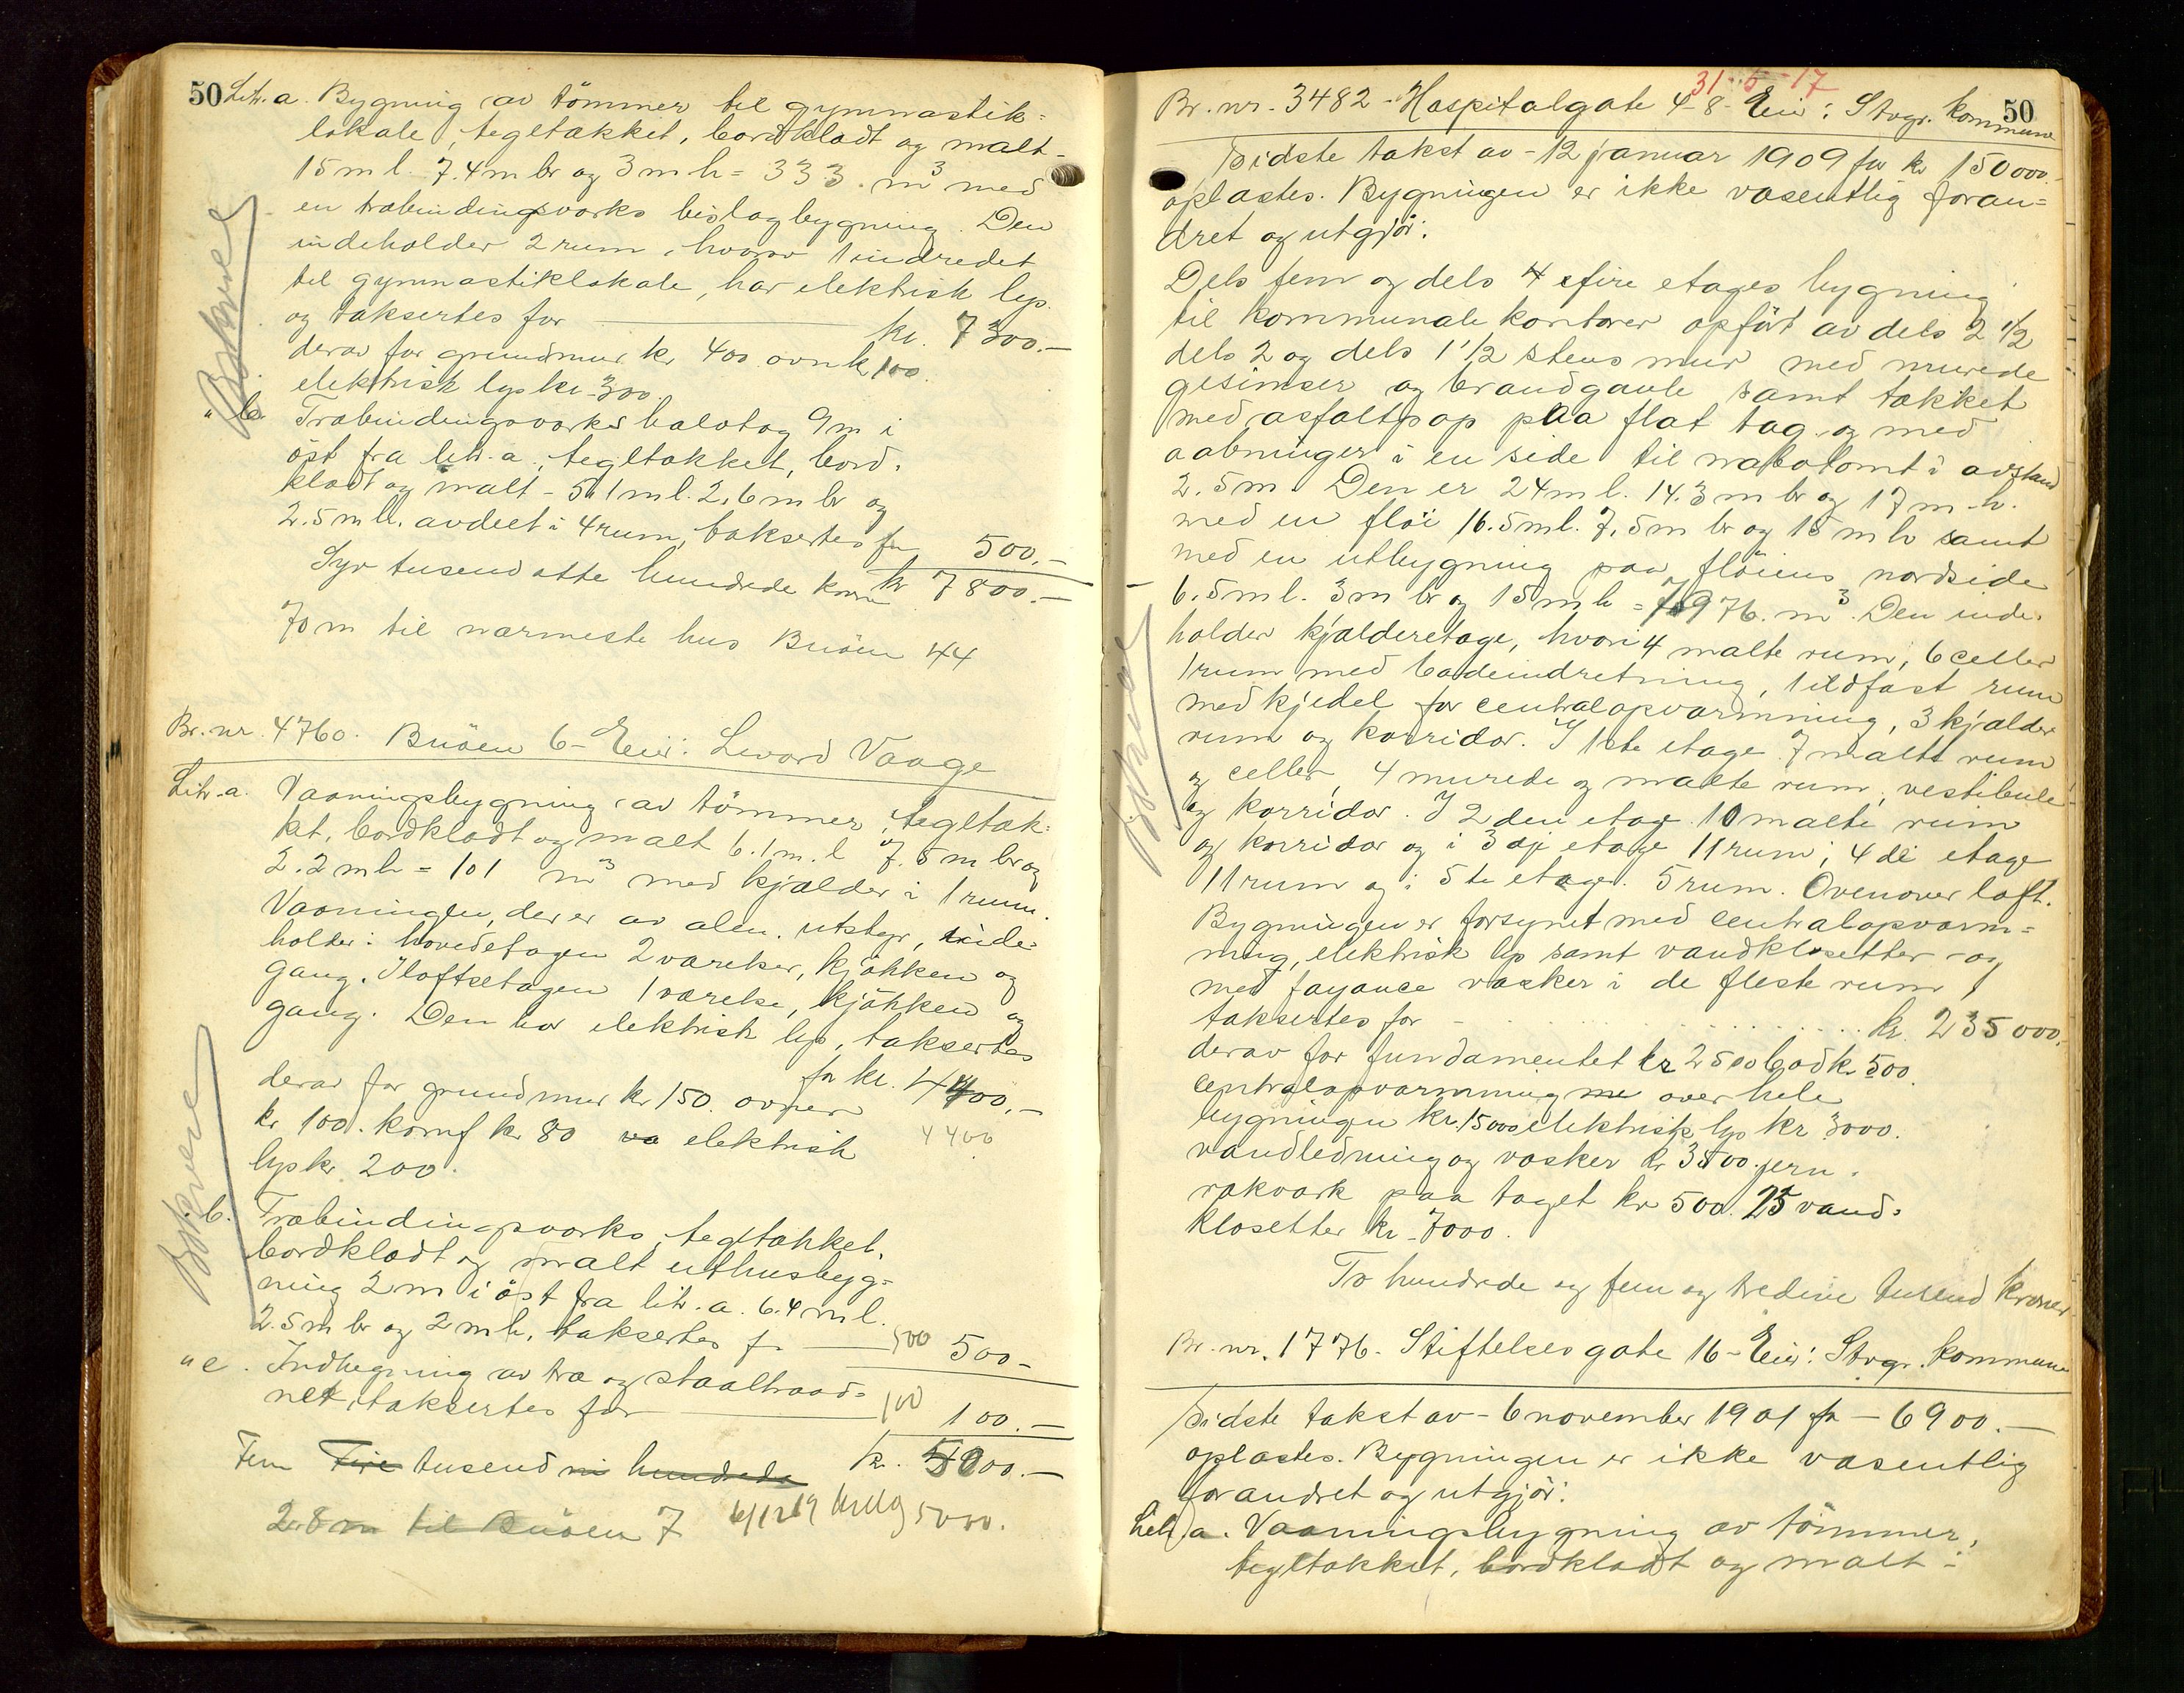 50 Litr. a. Bygning av tömmer til gymnastik=
lokale, tegltækket, bordklædt og malt -
15 m l. 7.4 m br og 3 m h = 333. m³ med
en træbindingsværks bislagbygning. Den
indeholder 2 rum, hvorav 1 indredet
til gymnastiklokale, har elektrisk lys
og taksertes for kr. 7300.-
derav for grundmur kr 400 ovn kr 100.
elektrisk lys kr 300.
Bokført
" b. Træbindingsværks halvtag 9 m i
öst fra litr. a, tegltækket, bord-
klædt og malt - 5.1 m l. 2.6 m br og
2.5 m h. avdelt i 4 rum, taksertes for 500.-
Syv tusend otte hundrede kroner kr 7800.-
70 m til nærmeste hus Buöen 44
Br. nr. 4760. Buöen 6 - Eier: Sevard Vaage
Litr. a. Vaaningsbygning av tömmer, tegltæk=
ket, bordklædt og malt 6.1 m. l 7.5 m br og
2.2 m h = 101 m³ med kjælder i 1 rum.
Vaaningen, der er av alm. utstyr, inde=
holder i hovedetagen 2 værelser, kjökken og
gang. I loftsetagen 1 værelse, kjökken og
gang. Den har elektrisk lys, taksertes
for kr. 4400.-
derav for grundmur kr 150. ovner
4400
kr 100. komf kr 80 elektrisk
lys kr 200.
Bokført
" b. Træbindingsværks, tegltækket,
bordklædt og malt uthusbyg=
ning 2 m i öst fra litr. a. 6.4 m l.
2.5 m br og 2 m h, taksertes for 500 500-
" c. Indhegning av træ og staaltraad=
net, taksertes for 100 100.-
Fem Fire tusend ni hundrede kr. 5000.-
2.8 m til Buöen 7 6/12 19 5000.
31-5-17
Br. nr. 3482 - Hospitalgate 4-8- Eier: Stvgr. kommune 50
Sidste takst av - 12 januar 1909 for kr 150000.-
oplæstes. Bygningen er ikke væsentlig foran=
dret og utgjör:
Dels fem og dels 4 fire etages bygning
til kommunale kontorer opfört av dels 2 1/2
dels 2 og dels 1 1/2 stens mur med murede
gesimser og brandgavle samt tækket
med asfaltpap paa flat tag og med
aabninger i en side til nabotomt i avstand
2.5 m. Den er 24 m l. 14.3 m br og 17 m h.
med en flöi 16.5 m l. 7.5 m br og 15 m h samt
med en utbygning paa flöiens nordside
6.5 m l. 3 m br og 15 m h = 7976. m³. Den inde-
holder kjælderetage, hvori 4 malte rum, 6 celler
1 rum med badeindretning, 1 ildfast rum
med kjedel for centralopvarmning, 3 kjælder
rum og korridor. I 1ste etage 7 malte rum
og celler, 4 murede og malte rum, vestibule
og korridor. I 2den etage 10 malte rum
og korridor og i 3dje etage 11 rum, 4de etage
11 rum og i 5te etage 5 rum. Ovenover loft.
Bokført
Bygningen er forsynet med centralopvarm=
ning, elektrisk lys samt vandklosetter og
med fayance vasker i de fleste rum,
taksertes for kr. 235000.
derav for fundamentet kr 2500 bad kr 500.
centralopvarmning over hele
bygningen kr. 15000 elektrisk lys kr 3000.
vandledning og vasker kr 3500. jern-
rækværk paa taget kr 500. 25 vand=
klosetter kr. 7000.
To hundrede og fem og tredive tusend kroner
Br. nr. 1776 - Stiftelsesgate 16 - Eier: Stvgr. kommune
Sidste takst av - 6 november 1901 for - 6900.-
oplæstes. Bygningen er ikke væsentlig
forandret og utgjör:
Litr. a. Vaaningsbygning av tömmer,
tegltækket, bordklædt og malt -